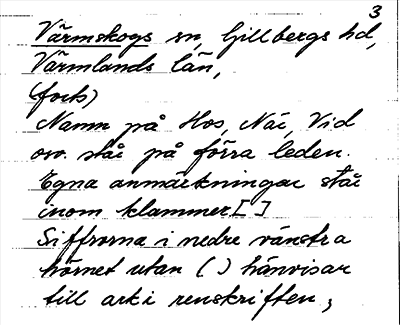 3
Värmskogs sn, Gillbergs hd,
Värmlands län,
(forts)
Namn på Hos, När, Vid
osv. står på förra leden.
Egna anmärkningar står
inom klammer [ ]
Siffrorna i nedre vänstra
hörnet utan ( ) hänvisar
till ark i renskriften,